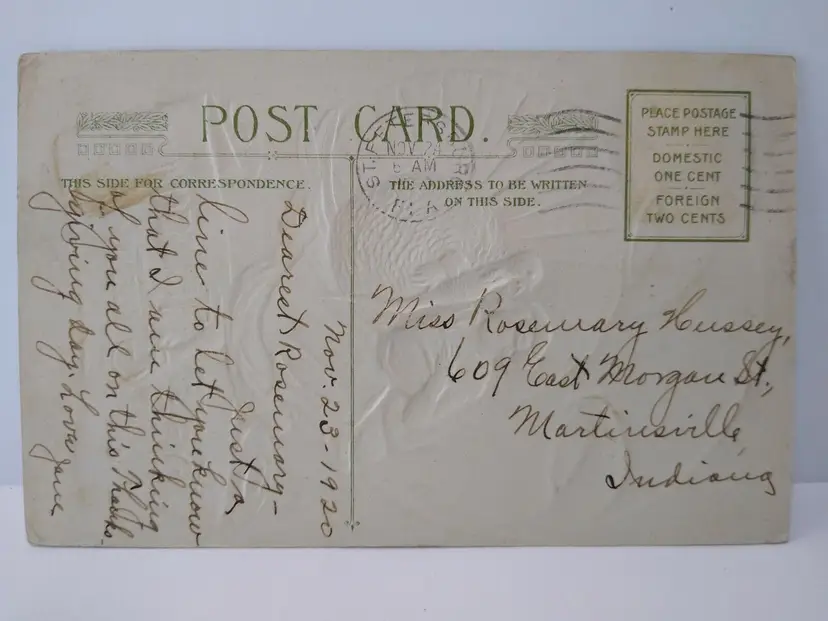 POST CARD.
ST. PETERSBURG
NOV 24
6 AM
FLA
PLACE POSTAGE
STAMP HERE
DOMESTIC
ONE CENT
FOREIGN
TWO CENTS
THIS SIDE FOR CORRESPONDENCE.
THE ADDRESS TO BE WRITTEN
ON THIS SIDE.
Nov. 23-1920
Dearest Rosemary-
Just a
line to let you know
that I was thinking
of you all on this Thanks-
giving Day. Love
Jane
Miss Rosemary Hussey,
609 East Morgan St.,
Martinsville
Indiana